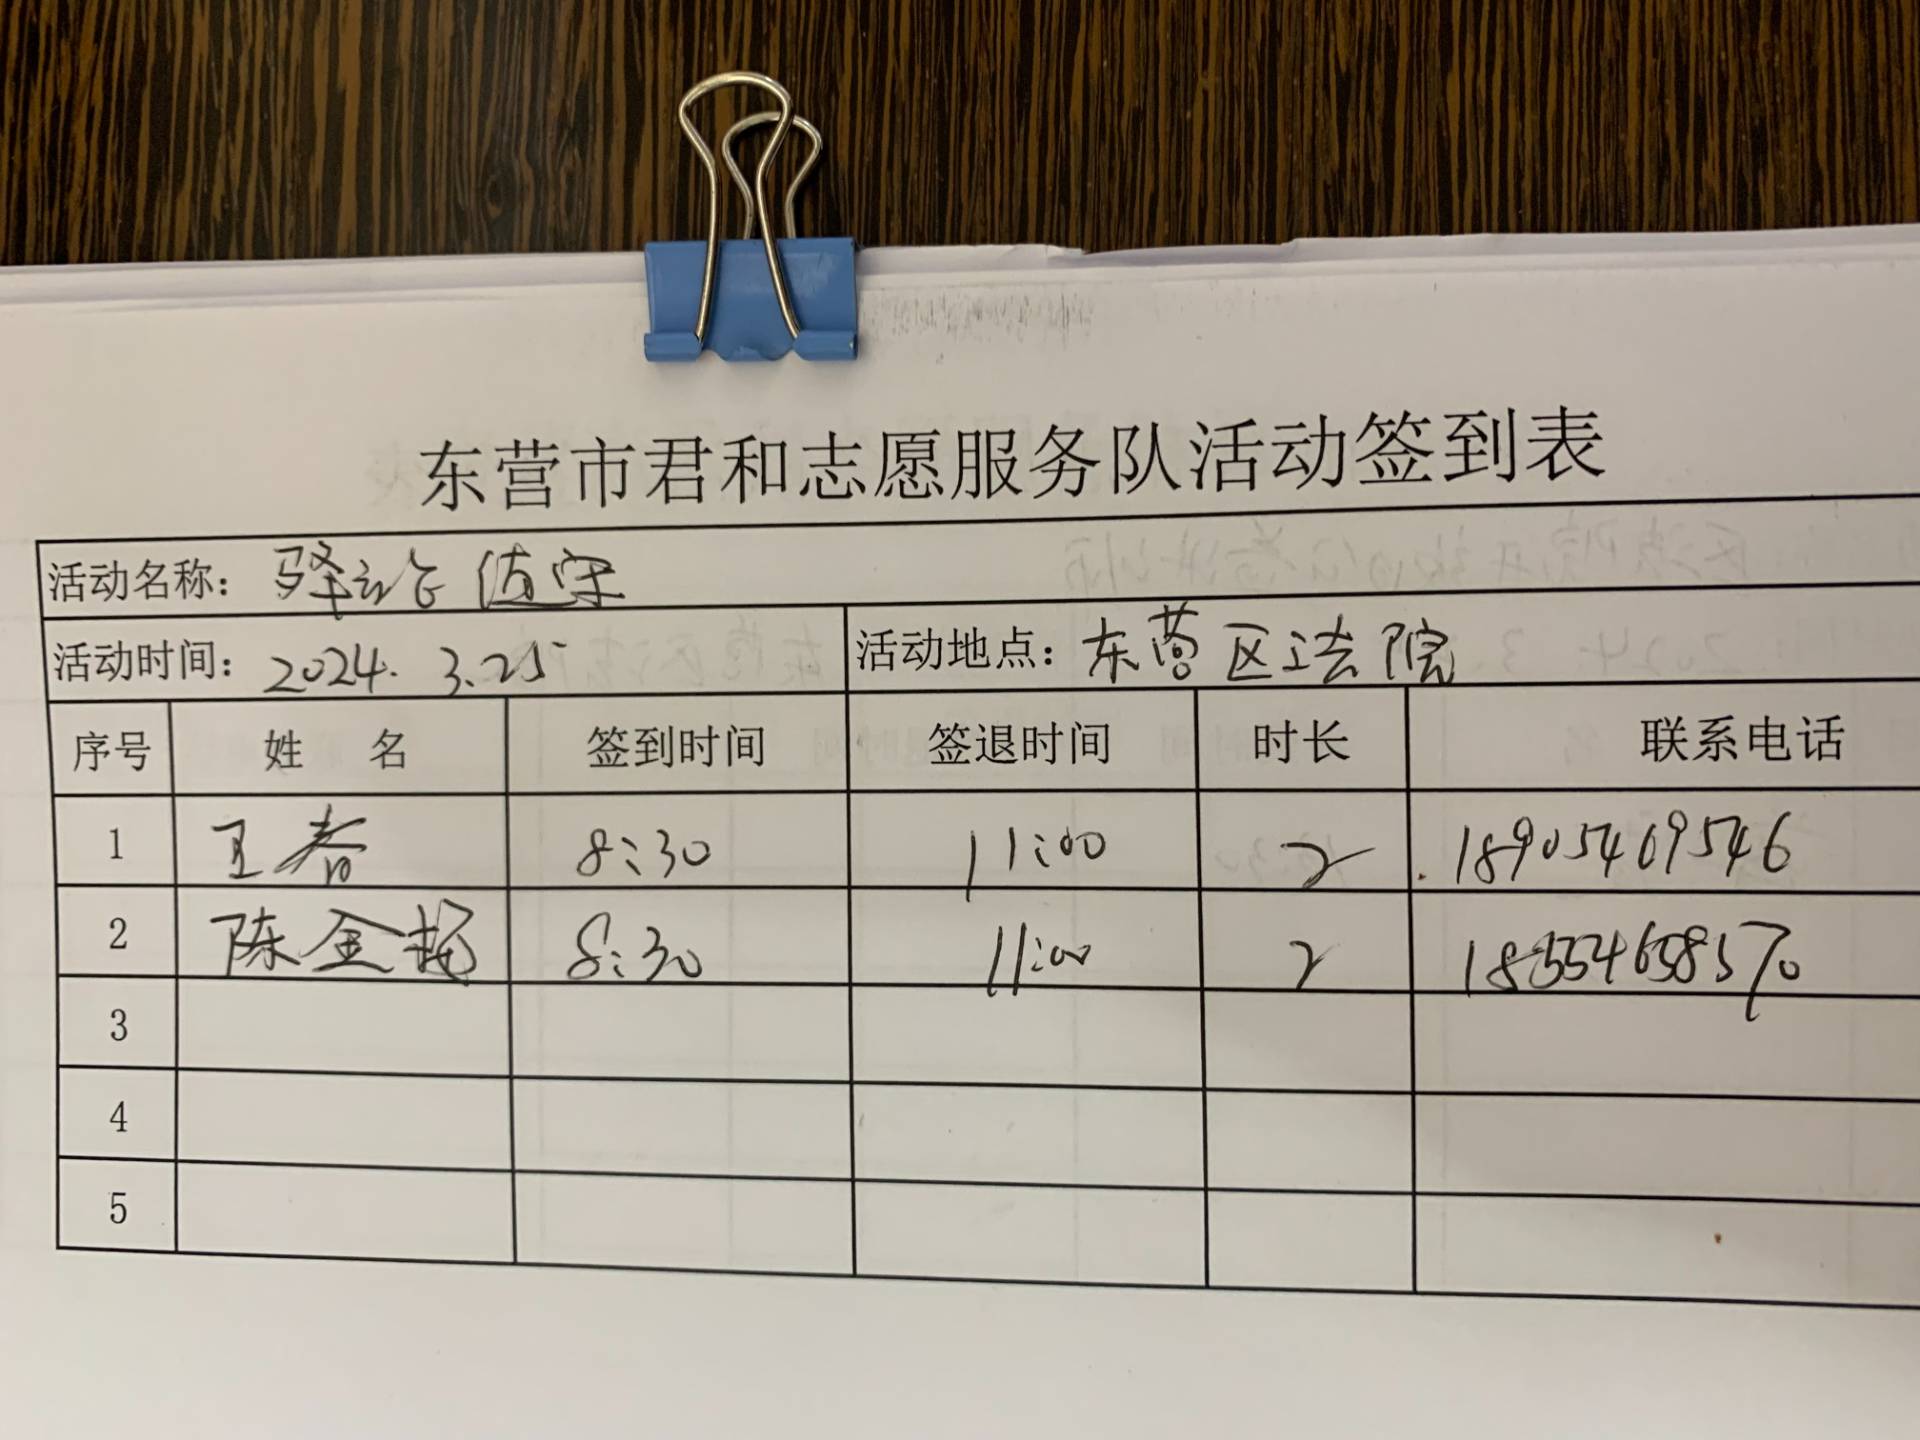 东营市君和志愿服务队活动签到表
活动名称：驿站值守
活动时间：2024.3.25 活动地点：东营区法院
序号 姓名 签到时间 签退时间 时长 联系电话
1 王春 8:30 11:00 2 18905469546
2 陈金 8:30 11:00 2
3
4
5